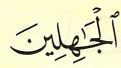 ٱلْجَٰهِلِينَ